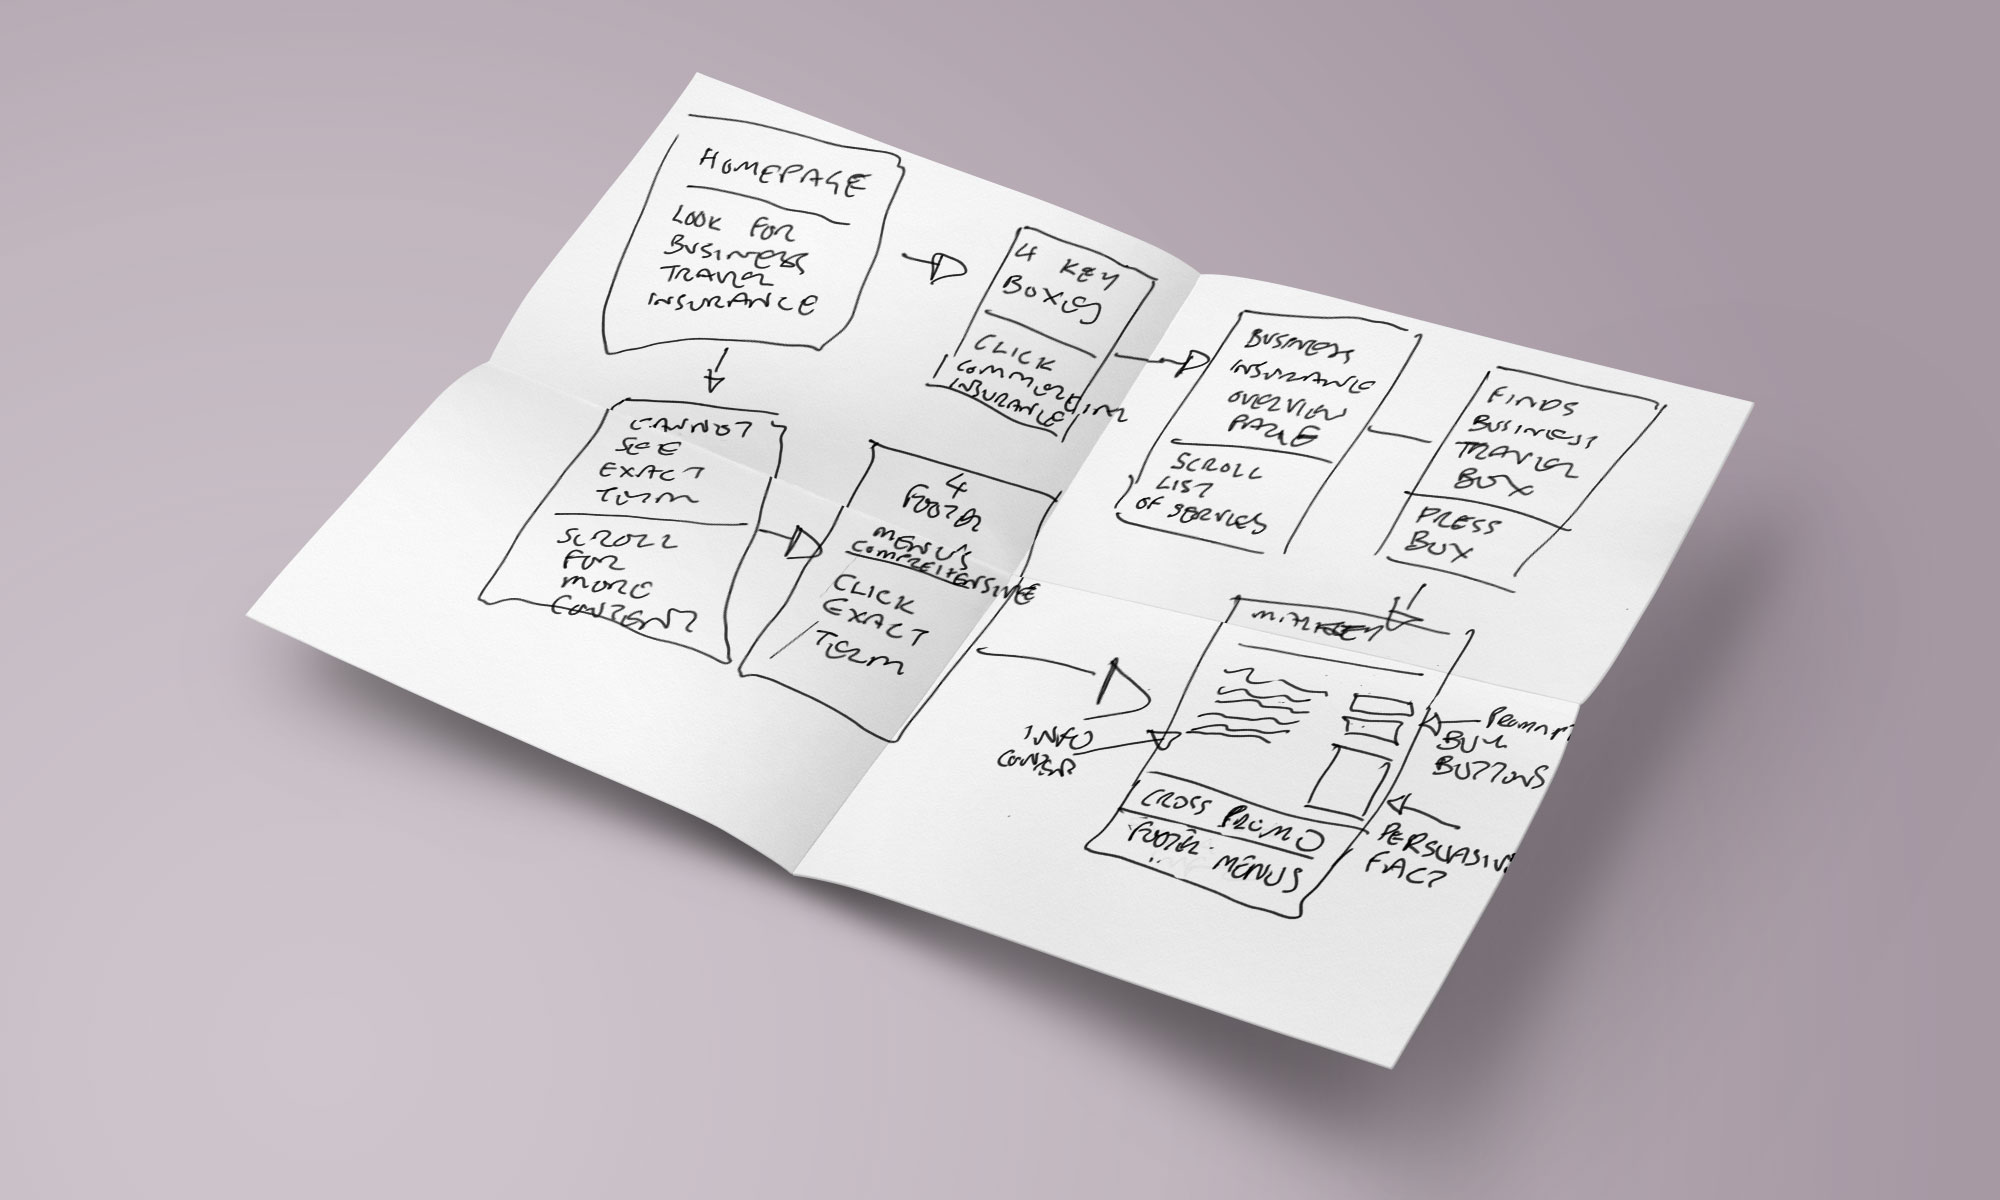 HOMEPAGE
LOOK FOR
BUSINESS
TRAVEL
INSURANCE
4 KEY
BOXES
CLICK
COMMERCIAL
INSURANCE
BUSINESS
INSURANCE
OVERVIEW
PAGE
SCROLL
LIST
OF SERVICES
FINDS
BUSINESS
TRAVEL
BOX
PRESS
BOX
CANNOT
SEE
EXACT
TERM
SCROLL
FOR
MORE
CONTENT
4
FOOTER
MENU'S
COMPREHENSIVE
CLICK
EXACT
TERM
INFO
CONTENT
BUY
BUTTONS
PERSUASIVE
FACT
CROSS PROMO
FOOTER MENUS